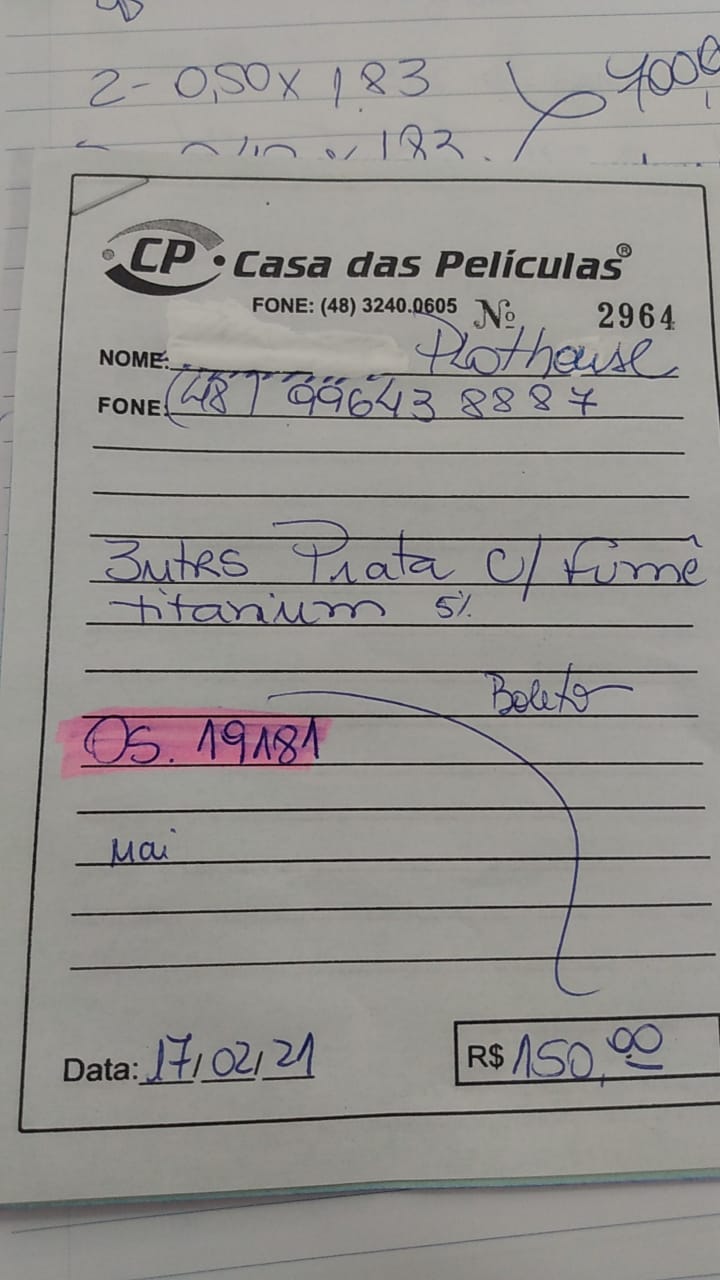 2- 0,50 x 1,83
CP Casa das Películas®
FONE: (48) 3240.0605 Nº 2964
NOME: Plothouse
FONE: (48) 99643 8887
3mtrs Prata c/ fumê
titanium 5%
Boleto
OS. 19181
Mai
Data: 17/02/21 R$ 150,00